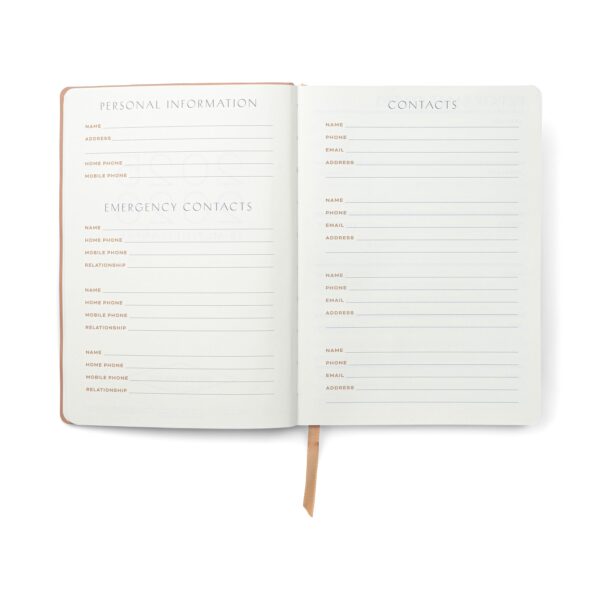 PERSONAL INFORMATION
NAME
ADDRESS
HOME PHONE
MOBILE PHONE
EMERGENCY CONTACTS
NAME
HOME PHONE
MOBILE PHONE
RELATIONSHIP
NAME
HOME PHONE
MOBILE PHONE
RELATIONSHIP
NAME
HOME PHONE
MOBILE PHONE
RELATIONSHIP
CONTACTS
NAME
PHONE
EMAIL
ADDRESS
NAME
PHONE
EMAIL
ADDRESS
NAME
PHONE
EMAIL
ADDRESS
NAME
PHONE
EMAIL
ADDRESS